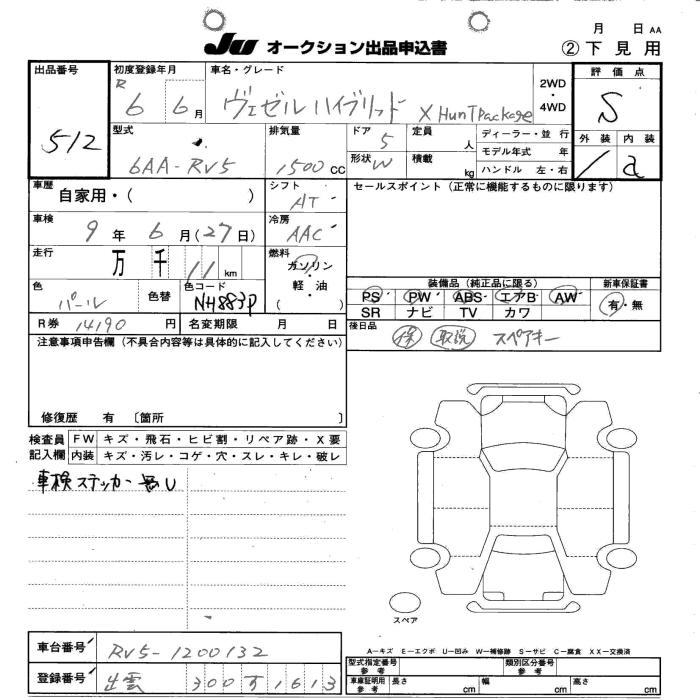 月 日 AA
JU オークション出品申込書 ②下見用
出品番号 512
初度登録年月 R 6 6月
車名・グレード ヴェゼル ハイブリッド X HunTPackage
2WD・4WD
評価点 S
外装 1 内装 a
型式 6AA-RV5
排気量 1500 CC
ドア 5
形状 W
定員 人
積載 kg
ディーラー・並行
モデル年式 年
ハンドル 左・右
車歴 自家用・( )
シフト AT
セールスポイント(正常に機能するものに限ります)
車検 9年 6月(27日)
冷房 AAC
走行 万 千 11 km
燃料 ガソリン・軽油 ( )
色 パール
色替
色コード NH883P
装備品(純正品に限る)
PS PW ABS エアB AW
SR ナビ TV カワ
新車保証書 有・無
R券 14190 円
名変期限 月 日
後日品 保 取説 スペアキー
注意事項申告欄(不具合内容等は具体的に記入してください)
修復歴 有 〔箇所 〕
検査員記入欄
FW キズ・飛石・ヒビ割・リペア跡・X要
内装 キズ・汚レ・コゲ・穴・スレ・キレ・破レ
車検ステッカー無し
スペア
車台番号 RV5-1200132
登録番号 出雲 300 す 1613
A―キズ E―エクボ U―凹み W―補修跡 S―サビ C―腐食 XX―交換済
型式指定番号 参考
類別区分番号 参考
車庫証明用 参考 長さ cm 幅 cm 高さ cm